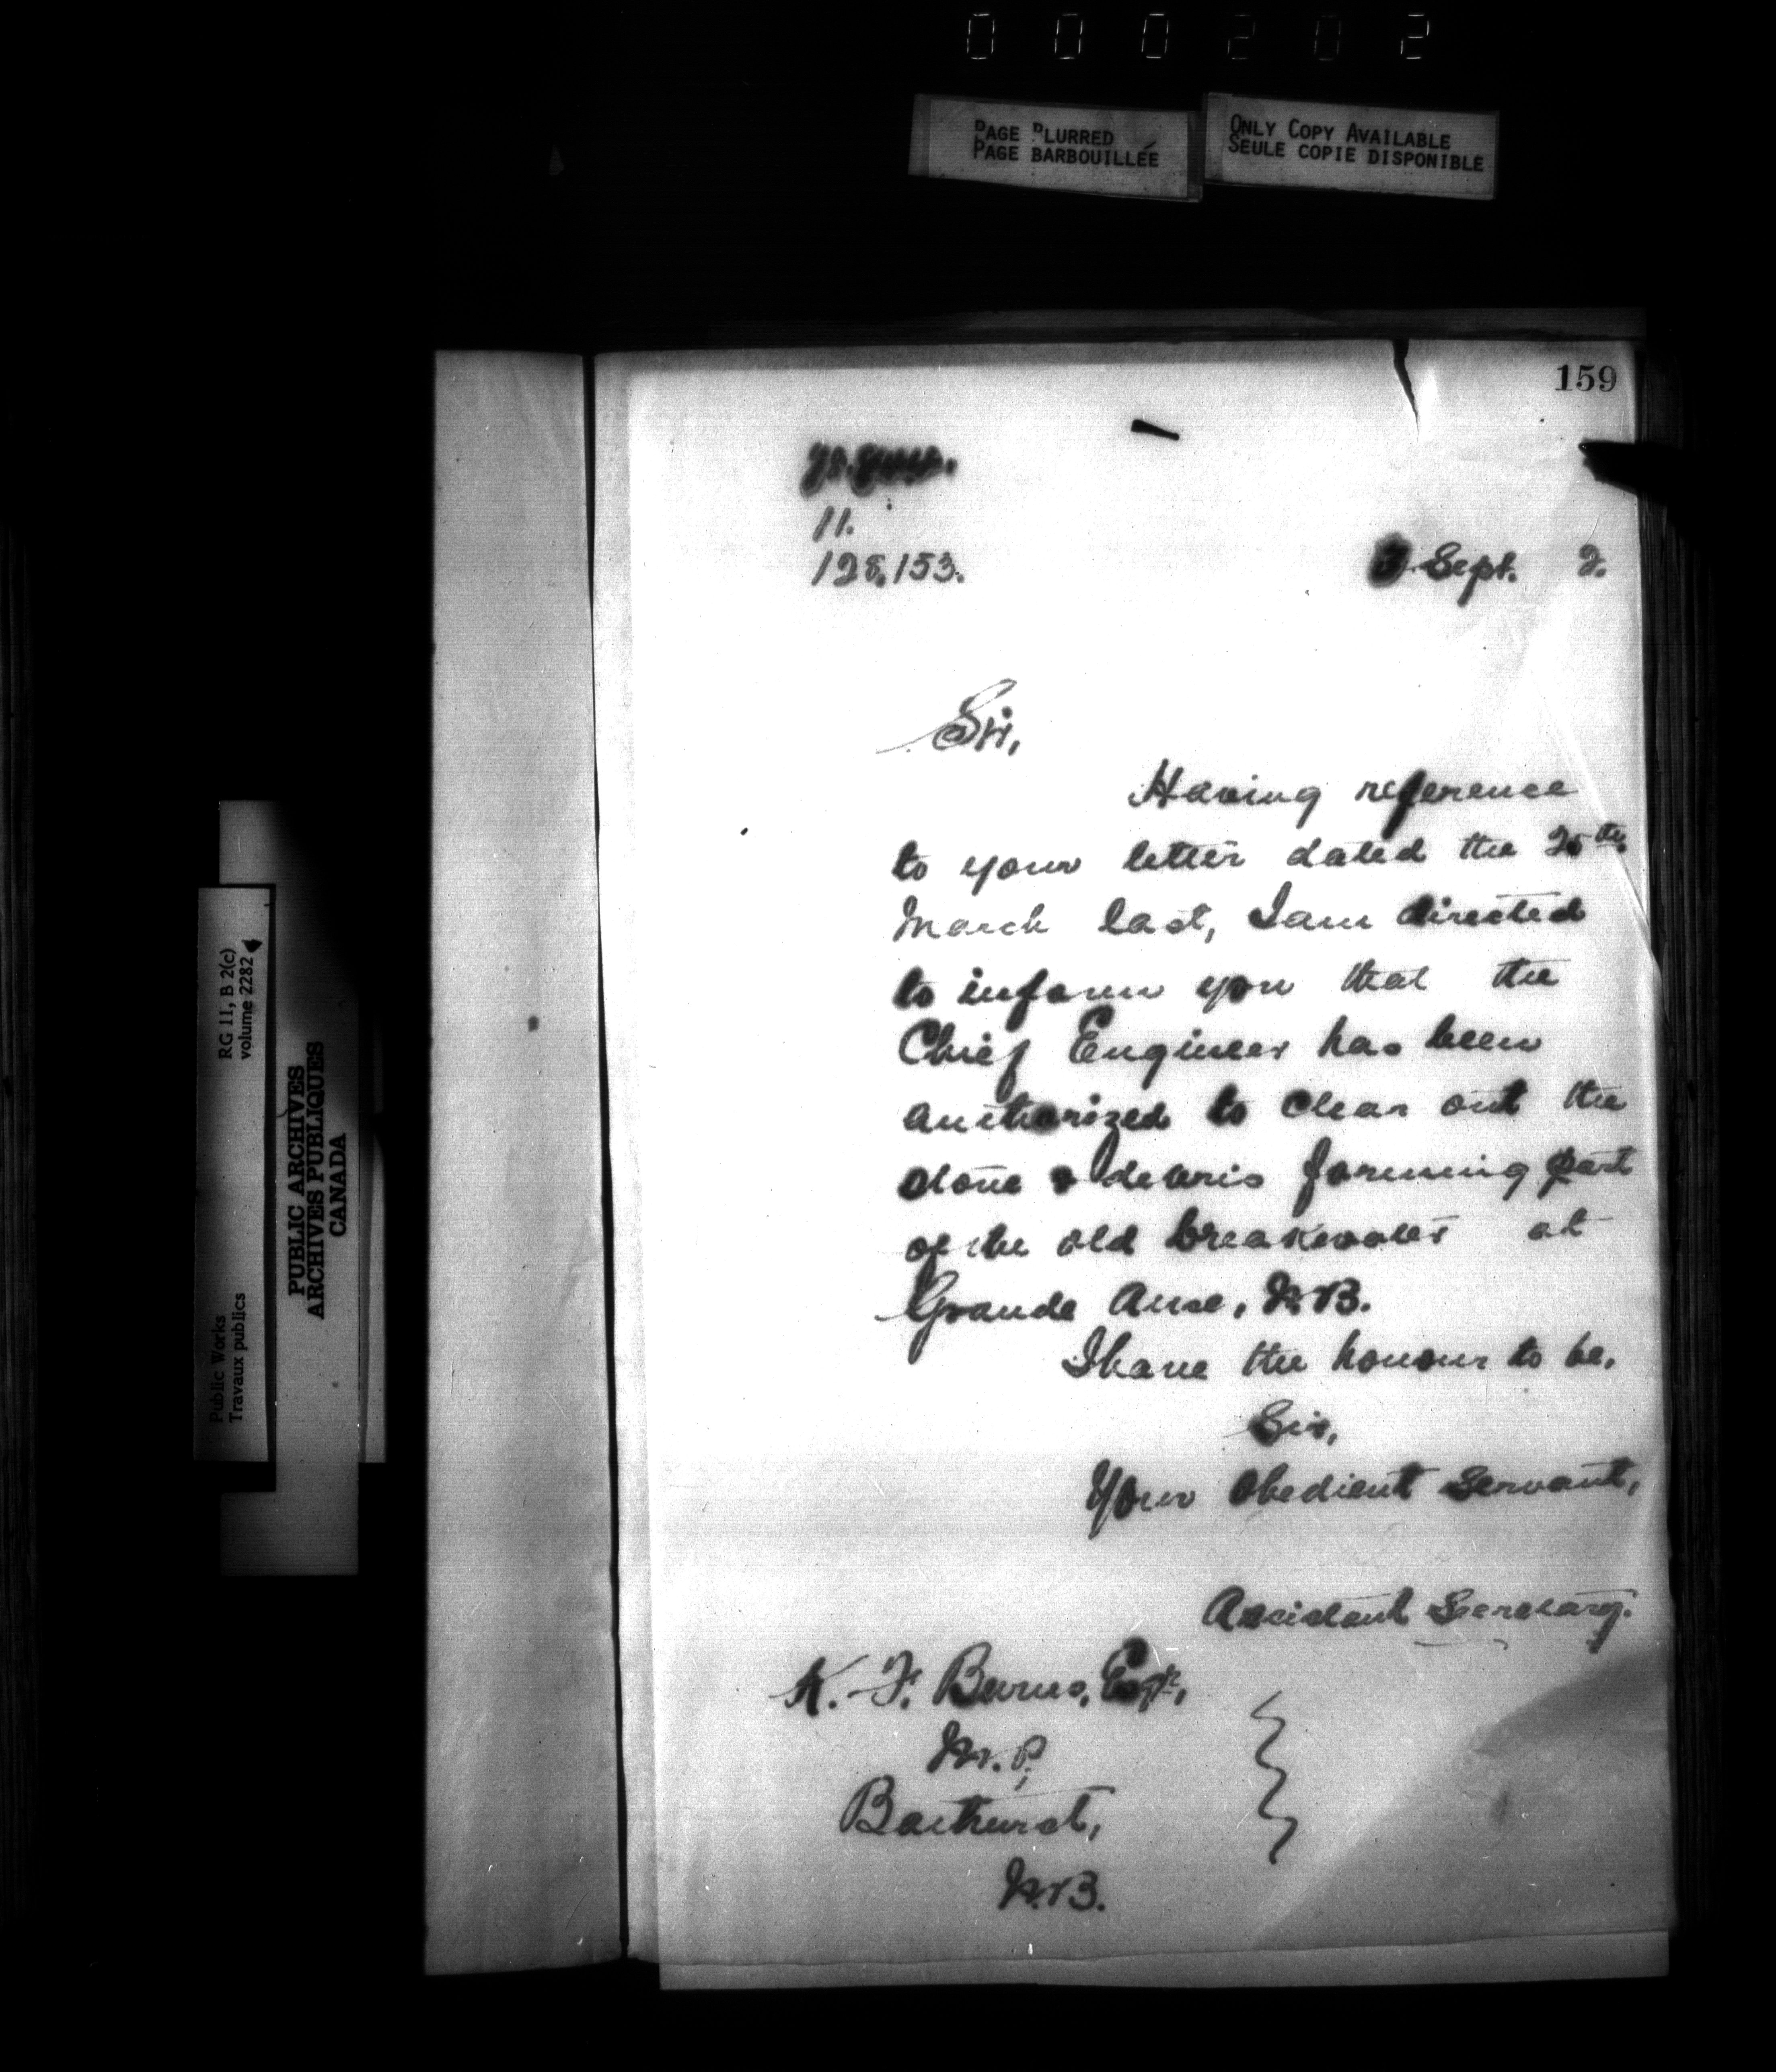 000202
PAGE BLURRED
PAGE BARBOUILLÉE
ONLY COPY AVAILABLE
SEULE COPIE DISPONIBLE
159
11.
128,153.
3 Sept. 2.
Sir,
Having reference
to your letter dated the 25th
March last, I am directed
to inform you that the
Chief Engineer has been
authorized to clear out the
stone & debris forming part
of the old breakwater at
Grande Anse, N.B.
I have the honour to be,
Sir,
Your obedient servant,
Assistant Secretary.
K. F. Burns, Esqre,
M.P.,
Bathurst,
N.B.
RG 11, B 2(c)
volume 2282
Public Works
Travaux publics
PUBLIC ARCHIVES
ARCHIVES PUBLIQUES
CANADA